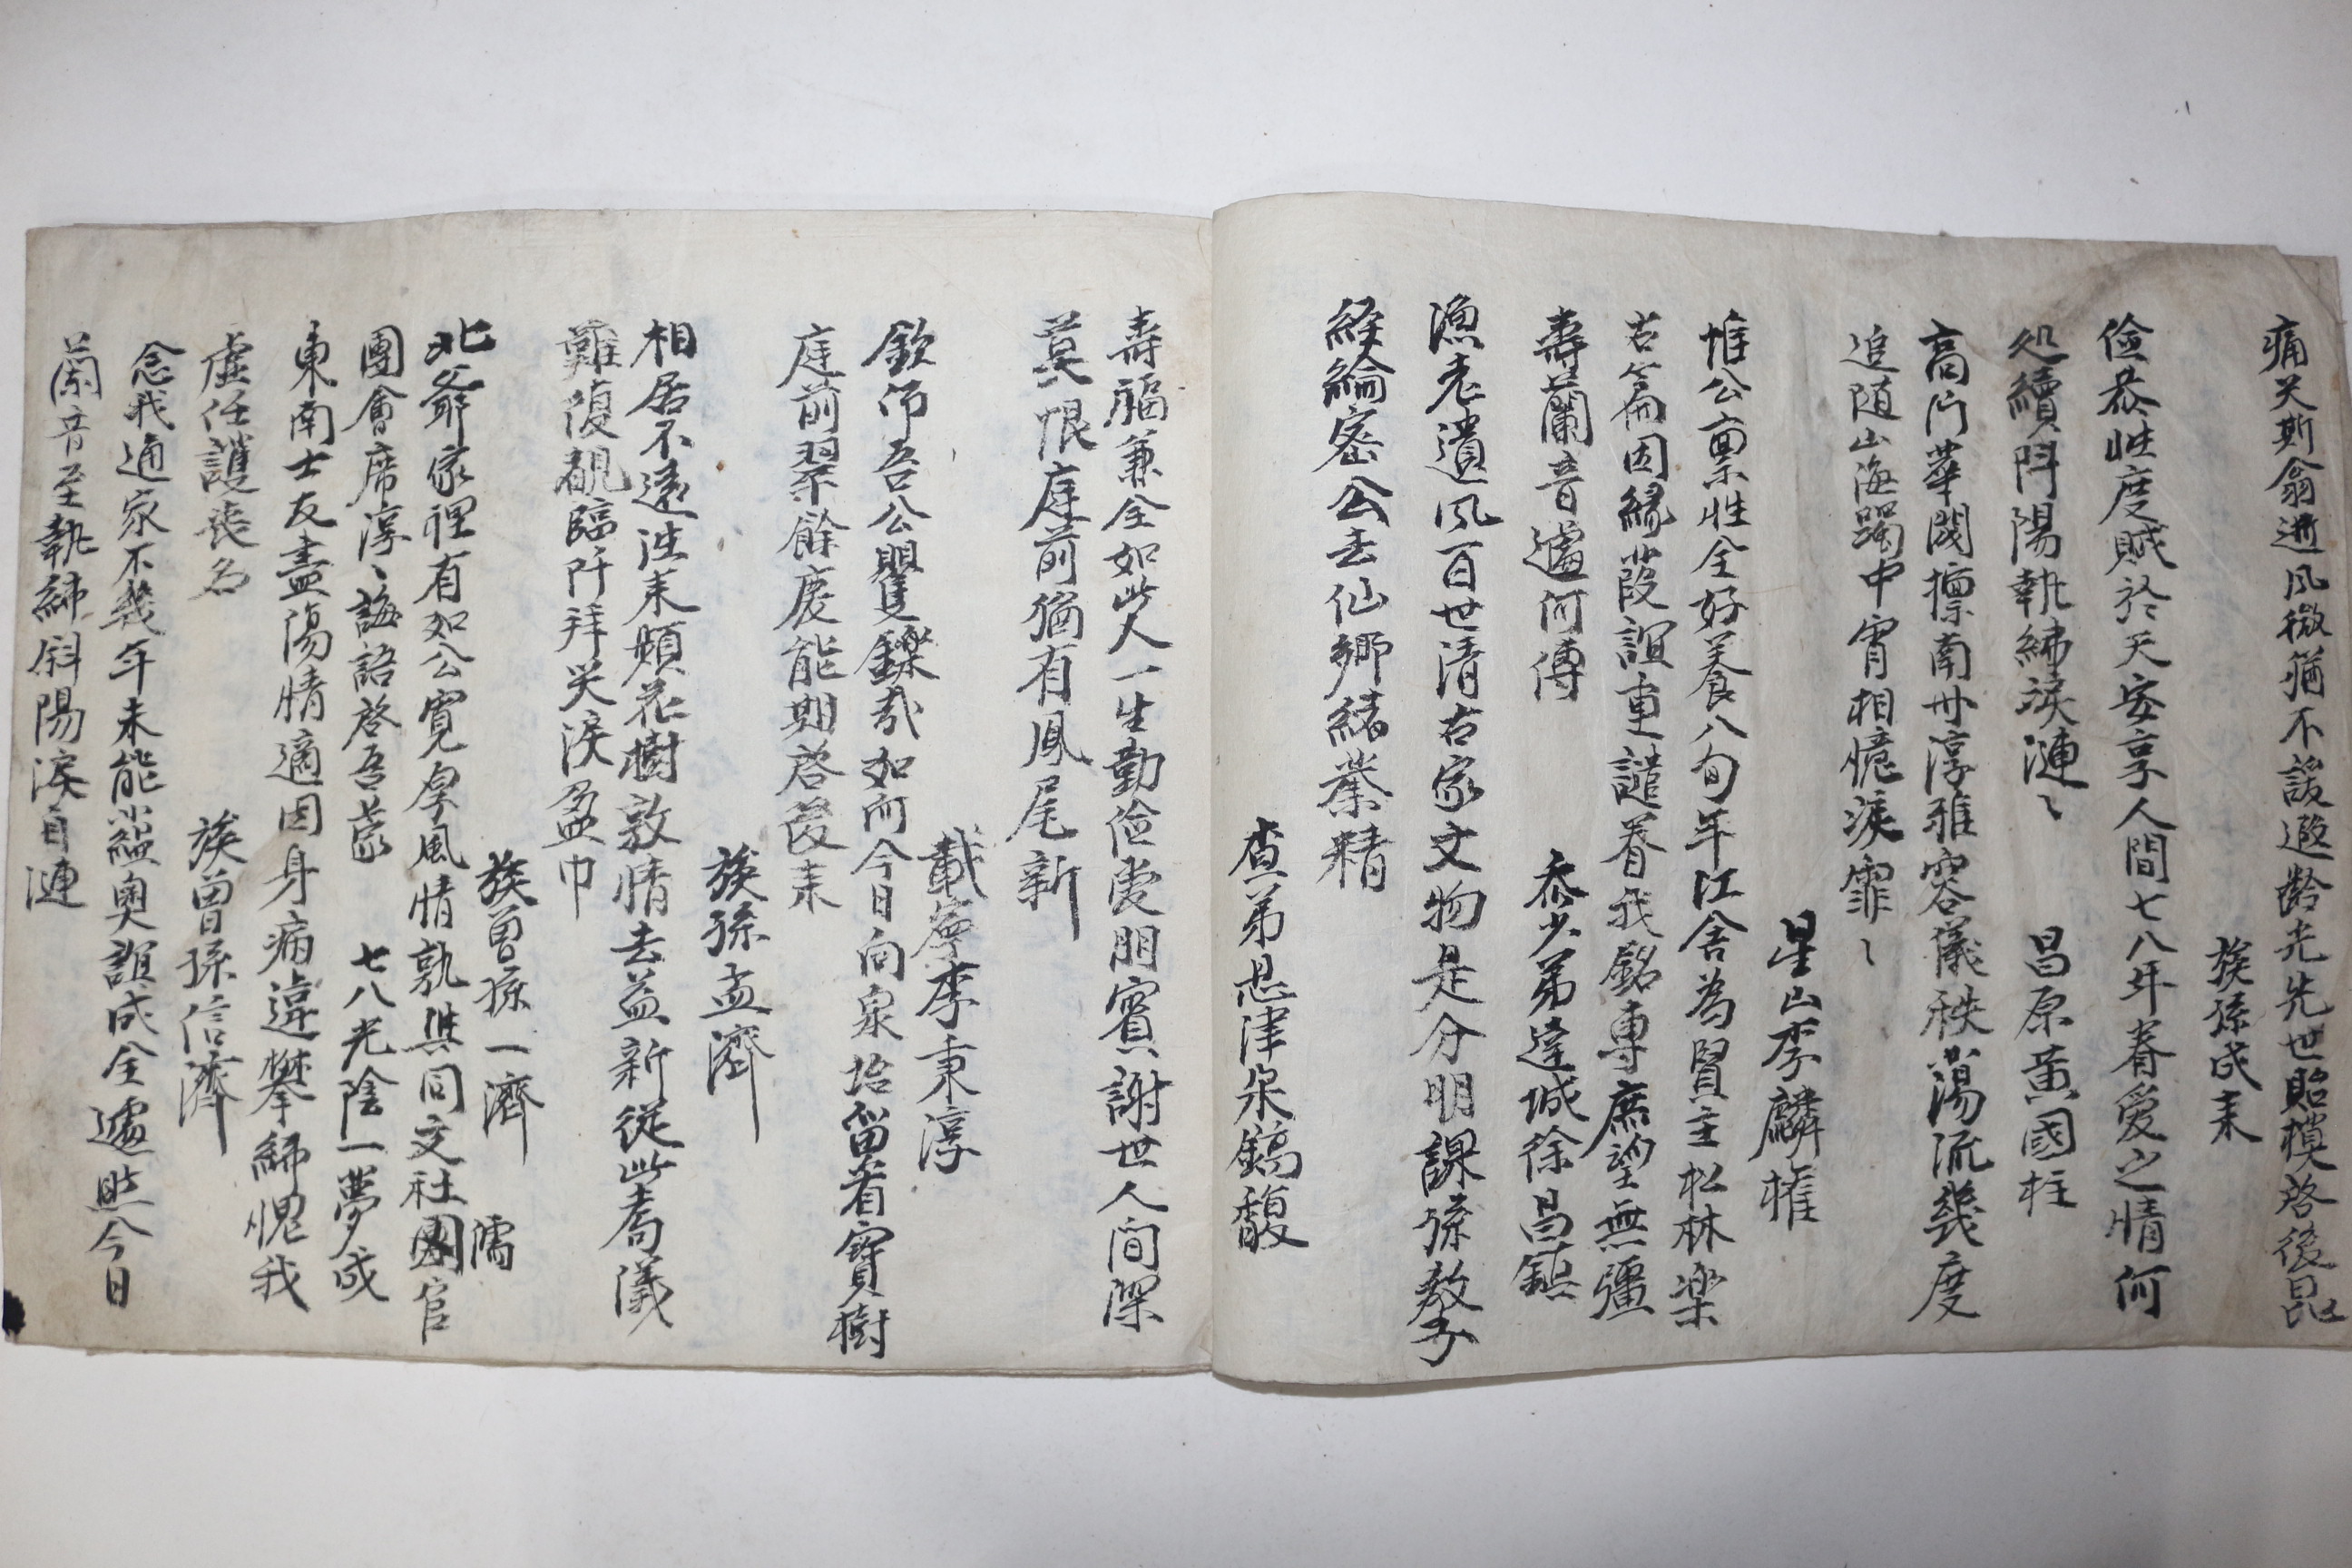 痛哭斯翁逝風微猶不諼遐齡光先世貽模啓後昆
族孫成耒
儉恭性度賦於天安享人間七八年眷愛之情何
処續阡陽執紼淚漣〻
昌原黃國柱
高門華閥擅南州淳雅容儀秩蕩流幾度
追隨山海躅中宵相憶淚霏〻
星山李麟權
惟公稟性全好養八旬年江舍爲賢主松林楽
右篇因緣葭誼重譴眷我銘專庶望無疆
壽蘭音遽何傳
忝少弟達城徐昌鎮
漁老遺風百世清古家文物是分明課孫教子
經綸密公去仙鄉緒業精
查弟 津 鎬馥
壽福兼全如此人一生勤儉愛朋賓謝世人间深
莫恨庭前猶有鳳尾新
載寧李秉淳
欽仰吾公矍鑠哉如何今日向泉坮留着寶樹
庭前翠餘慶能期啓後耒
族孫孟濟
相居不遠泩耒頻花樹敦情去益新從此喬儀
難復覩臨阡拜哭淚盈巾
族曾孫一濟
北爺家裡有如公寬厚風情孰與同文社儒官
團會席淳〻誨語啓吾蒙
七八光陰一夢成
東南士友盡傷情適因身病違攀紼愧我
虛任護喪名
族曾孫信濟
念我通家不幾年未能 蘊奧誼成全遽然今日
蘭音至執紼斜陽淚自漣